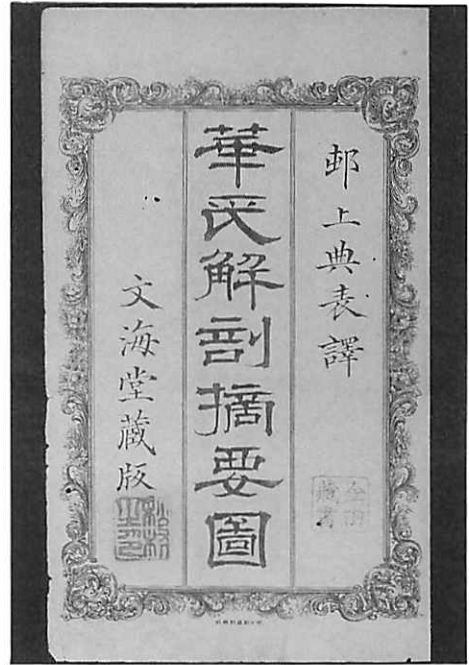 邨上典表譯
華氏解剖摘要圖
文海堂藏版